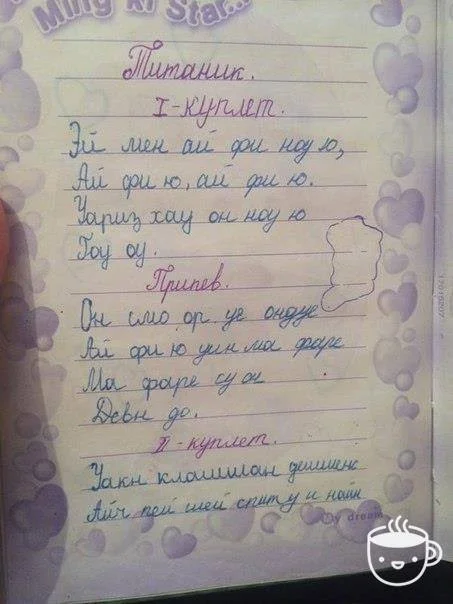 Ming ki Star...
Титаник.
I-куплет.
Эй мен ай фи ноу ю,
Ай фи ю, ай фи ю.
Уариз хау он ноу ю
Гоу оу.
Припев.
Он смо ор уе ондуе
Ай фи ю уин ма фаре
Ма фаре су он
Девн до.
II-куплет.
Уакн клашшан дишшенс
Айч пей шей спит у и найн
My dream